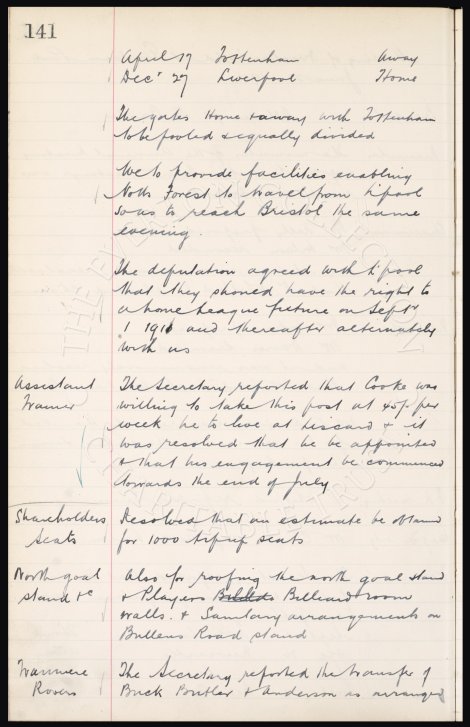 141
April 17 Tottenham Away
Decr 27 Liverpool Home
The gates Home & away with Tottenham
to be pooled & equally divided
We to provide facilities enabling
Notts Forest to travel from L'pool
so as to reach Bristol the same
evening.
The deputation agreed with L'pool
that they should have the right to
a home League fixture on Septr
1 1910 and thereafter alternately
with us
Assistant
Trainer
The Secretary reported that Cooke was
willing to take this post at 45/- per
week he to live at Liscard & it
was resolved that he be appointed
& that his engagement be commenced
towards the end of July
Shareholders
Seats
Resolved that an estimate be obtained
for 1000 tip up seats
North goal
stand &c
Also for roofing the north goal stand
& Players Billiard room
walls. & Sanitary arrangements on
Bullens Road stand
Tranmere
Rovers
The Secretary reported the transfer of
Buck & Anderson as arranged